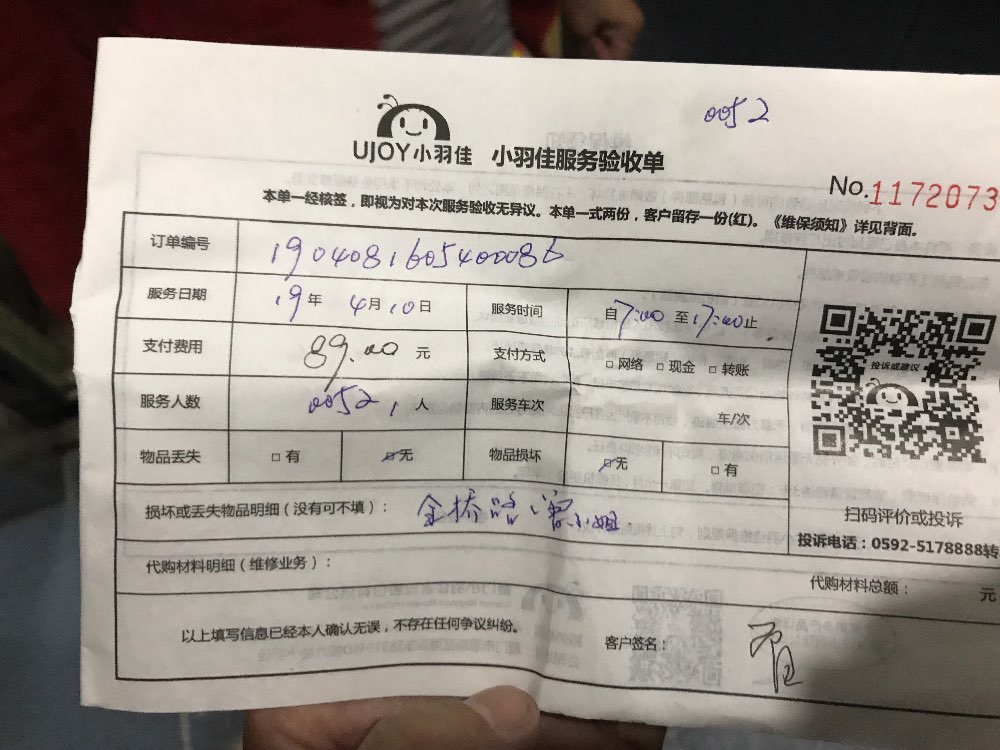 0052
UJOY小羽佳 小羽佳服务验收单
No.1172073
本单一经核签，即视为对本次服务验收无异议。本单一式两份，客户留存一份(红)。《维保须知》详见背面。
订单编号 1904081605400086
服务日期 19年 4月10日 服务时间 自7:00至17:00止
支付费用 89.00 元 支付方式 □网络 □现金 □转账
服务人数 0052 1 人 服务车次 车/次
物品丢失 □有 □无 物品损坏 □无 □有
投诉或建议
扫码评价或投诉
投诉电话：0592-5178888转
损坏或丢失物品明细（没有可不填）： 金桥路 小姐
代购材料明细（维修业务）： 代购材料总额： 元
以上填写信息已经本人确认无误，不存在任何争议纠纷。 客户签名：